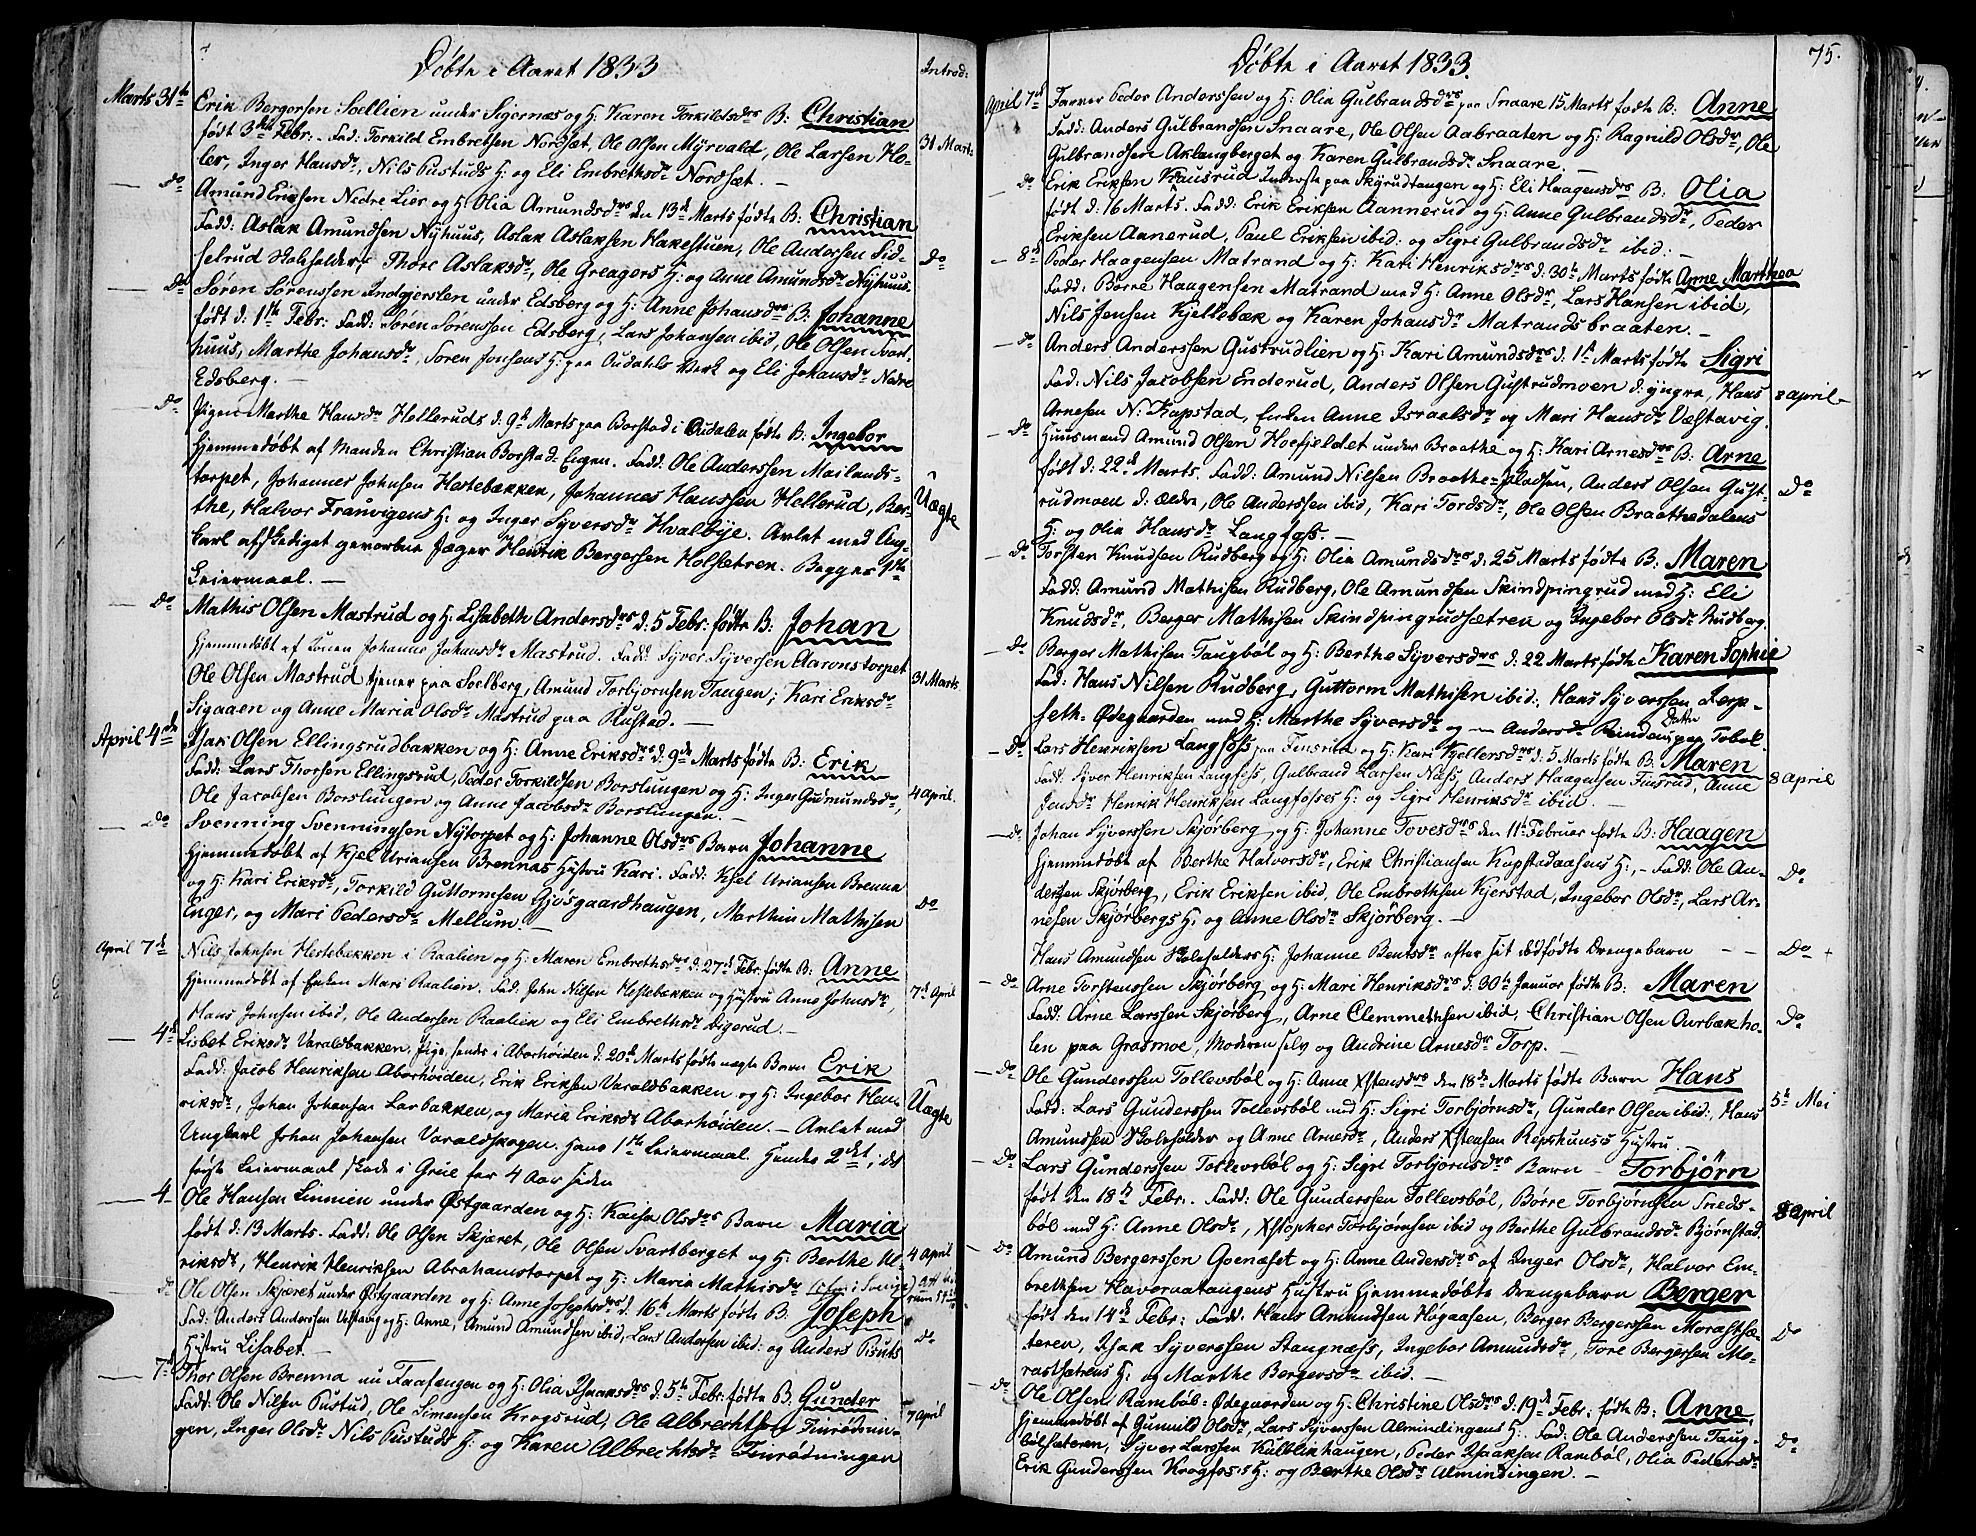 Døbte i Aaret 1833
Introd:
Marts 31te Erik Bergersen Soellien under Sigernæs og H: Karen Torkildsdrs B: Christian
født 3die Febr. Fad: Torkild Embretsen Nordsæt, Ole Olsen Myrvald, Ole Larsen Ho- 31 Marts
ler, Inger Hansdr, Nils Pustuds H: og Eli Embrethsdr Nordsæt. —
— Do Amund Ericksen Nedre Lier og H: Olia Amundsdrs den 13de Marts fødte B: Christian
Fadd: Aslak Amundsen Nyhuus, Aslak Aslaksen Hakestuen, Ole Andersen Sid-
selrud Skoleholder, Thore Aslaksdr, Ole Greagers H: og Anne Amundsdr Nyhuus. Do
— Do Søren Sørenssen Indgjerslen under Edsberg og H: Anne Johansdrs B: Johanne
født d: 1ste Febr: Fadd: Søren Sørenssen Edsberg, Lars Johansen ibid, Ole Olsen Svart-
huus, Marthe Johansdr, Søren Jonsens H: paa Oudahls Værk og Eli Johansdr Nedre
Edsberg. —
— Do Pigen Marthe Hansdr Helleruds d: 9de Marts paa Borstad i Oudalen fødte B: Ingebor
hjemmedøbt af Manden Christian Borstad-Eugen. Fadd: Ole Anderssen Mailands-
torpet, Johannes Johnsen Hestebækken, Johannes Hanssen Hellerud, Ber- Uægte
the, Halvor Franvigens H: og Inger Syversdr Hvalbye. Avlet med Ung-
karl afskediget gevorbne Jæger Henrik Bergersen Holsætren. Begges 1ste
Leiermaal. —
— Do Mathis Olsen Mastrud og H: Lisabeth Andersdrs d: 5 Febr: fødte B: Johan
hjemmedøbt af Konen Johanne Johansdr Mastrud. Fadd: Syver Syversen Aaronstorpet
Ole Olsen Mastrud tjener paa Soelberg, Amund Torbjørnsen Tangen; Kari Eriksdr 31 Marts
Sigaaen og Anne Maria Olsdr Mastrud paa Rustad. —
April 4de Isak Olsen Ellingsrudbakken og H: Anne Eriksdrs d. 9de Marts fødte B: Erik
Fadd: Lars Thorsen Ellingsrud, Peder Torkildsen Borslungen og H: Inger Gudmundsdr,
Ole Jacobsen Borslungen og Anne Jacobsdr Borslungen. — 4 April.
— Do Svenning Svenningsen Nytorpet og H: Johanne Olsdrs Barn Johanne
hjemmedøbt af Kjel Uriansen Brennas Hustru Kari. Fadd: Kjel Uriansen Brenna
og H: Kari Eriksdr, Torkild Guttormsen Gjøsgaardhaugen, Marthin Mathisen Do
Enger, og Mari Pedersdr Mellum. —
April 7de Nils Johnsen Hestebækken i Raalien og H: Maren Embrethsdrs d: 27de Febr. fødte B: Anne
hjemmedøbt af Enken Mari Raalien. Fad. John Nilsen Hestebækken og Hustru Anne Johnsdr, 7de April
Hans Johnsen ibid, Ole Andersen Raalien og Eli Embrethsdr Digerud. —
— 4de Lisbet Eriksdr Varaldbakken, Pige, hendes i Aborhøiden d. 20de Marts fødte uægte Barn Erik
Fadd: Jacob Henriksen Aborhøiden, Erik Eriksen Varaldbakken og H: Ingebor Hen-
riksdr, Johan Johansen Larbakken, og Maria Eriksdr Aborhøiden. — Avlet med Uægte
Ungkarl Johan Johansen Varaldskogen. Hans 1ste Leiermaal. Hendes 2det; det
første Leiermaal skede i Grue for 4 Aar siden
— 4 Ole Hansen Linnien under Østgaarden og H: Kaisa Olsdrs Barn Maria
født d: 13 Marts. Fadd: Ole Olsen Skjæret, Ole Olsen Svartberget og H: Berthe Ul-
riksdr, Henrik Henriksen Abrahamstorpet og H: Maria Mathisdr 4 April
Do Ole Olsen Skjæret under Østgaarden og H: Anne Josephsdrs d. 16de Marts fødte B. Joseph
Fad: Anders Anderssen Vestgaug og H: Anne, Amund Amundsen ibid, Lars Andersen ibid: og Anders Pruuts Do
Hustru Lisabet. —
— 7de Thor Olsen Brenna nu Faafængen og H: Olia Isaaksdrs d. 5te Febr: fødte B. Gunder
Fadd: Ole Nilsen Pustud, Ole Simensen Krogsrud, Ole Albrechtsen Finrødnin- 7 April
gen, Inger Olsdr Nils Pustuds H: og Karen Albrechtsdr Finrødningen
Døbte i Aaret 1833.
75.
April 7de Farver Peder Anderssen og H: Olia Gulbrandsdrs paa Snaare 15 Marts fødte B: Anne
Fadd: Anders Gulbrandsen Snaare, Ole Olsen Aabraaten og H: Ragnild Olsdr, Ole
Gulbrandsen Aklangberget og Karen Gulbrandsdr Snaare. —
— Do Erik Eriksen Krausrud Inderste paa Skyrudtangen og H: Eli Haagensdrs B: Olia
født d: 16 Marts. Fadd: Erik Eriksen Aannerud og H: Anne Gulbrandsdr, Peder
Eriksen Aanerud, Paul Eriksen ibid: og Sigri Gulbrandsdr ibid: —
— 8de Peder Haagensen Matrand og H: Kari Henriksdrs d: 30te Marts fødte Anne Marthea
Fadd: Børre Haagensen Matrand med H: Anne Olsdr, Lars Hansen ibid,
Nils Jensen Kjellebæk og Karen Johansdr Matrandsbraaten. —
— Do Anders Anderssen Gustrudlien og H: Kari Amundsdrs d. 1ste Marts fødte Sigri
Fad: Nils Jacobsen Enderud, Anders Olsen Gustrudmoen d: yngre, Hans 8 April
Arnesen N: Kapstad, Enken Anne Israelsdr og Mari Hansdr Væstavig.
— Do Huusmand Amund Olsen Hoefjeldet under Braathe og H: Kari Arnesdrs B: Arne
født d: 22de Marts. Fadd: Amund Nilsen Braathe-Julødsen, Anders Olsen Gust-
rudmoen d: ældre, Ole Anderssen ibid, Kari Tordsdr, Ole Olsen Braathedalens Do
H: og Olia Hansdr Langfoss. —
— Do Torsten Knudsen Rudberg og H: Olia Amundsdrs d: 25 Marts fødte B: Maren
Fadd: Amund Mathisen Rudberg, Ole Amundsen Skindpingrud med H: Eli
Knudsdr, Berger Mathisen Skindpingrudsætren og Ingebor Olsdr Rudberg
— Do Berger Mathisen Taugbøl og H: Berthe Syversdrs d. 22 Marts fødte Karen Sophie
Fad: Hans Nilsen Rudberg, Guttorm Mathisen ibid: Hans Syverssen Lerp-
seth-Ødegaarden med H: Marthe Syversdr og — Andersdr Reinden paa Tobøl.
— Do Lars Henriksen Langfoss paa Finsrud og H: Kari Kjeldersdrs d: 5 Marts fødte B: Maren
Fadd: Syver Henriksen Langfoss, Gulbrand Larsen Næss, Anders Haagensen Finsrud, Anne 8 April
Jensdr Henrik Henriksen Langfosses H: og Sigri Henriksdr ibid. —
— Do Johan Syverssen Skjørberg og H: Johanne Tovesdrs den 11te Februar fødte B: Haagen
hjemmedøbt af Berthe Halvorsdr, Erik Christiansen Kapstadaasens H; — Fadd: Ole An- Do
dersen Skjørberg, Erik Eriksen ibid, Ole Embrethsen Kjerstad, Ingebor Olsdr, Lars Ar-
nesen Skjørbergs H: og Anne Olsdr Skjørberg. —
Hans Amundsen Skoleholders H: Johanne Bentsdr efter sit dødfødte Drengebarn — Do +
— Do Arne Torstenssen Skjørberg og H: Mari Henriksdrs d: 30te Januar fødte B: Maren
Fadd: Arne Larssen Skjørberg, Arne Clemmetsen ibid, Christian Olsen Ourbækho- Do
len paa Grasmoe, Moderen selv og Andrine Arnesdrs Torp. —
— Do Ole Gunderssen Tollevsbøl og H: Anne Xstensdrs den 18de Marts fødte Barn Hans
Fadd: Lars Gunderssen Tollevsbøl med H: Sigri Torbjørnsdr, Gunder Olsen ibid:, Hans 5te Mai
Amundsen Skoleholder og Anne Arnesdr, Anders Xstensen Repshuuss Hustru —
— Do Lars Gunderssen Tollevsbøl og H: Sigri Torbjørnsdrs Barn — Torbjørn
født den 18de Febr. Fadd: Ole Gunderssen Tollevsbøl, Børre Torbjørnsen Sneds-
bøl med H: Anne Olsdr, Xstopher Torbjørnsen ibid og Berthe Gulbrandsdr Bjørnstad. 8 April
— Do Amund Bergerssen Goenæset og H: Anne Andersdrs af Inger Olsdr, Halvor Em-
brethsen Havoraatangens Hustru hjemmedøbte Drengebarn Berger
født den 14de Febr: Fadd: Hans Amundsen Høgaasen, Berger Bergerssen Moræstsæ-
teren, Isak Syverssen Staugnæss, Ingebor Amundsdr, Tore Bergersen Mo- Do
rastsæterens H: og Marthe Bergersdr ibid. —
— Do Ole Olsen Rambøl-Ødegaarden og H: Christine Olsdrs d: 19de Febr. fødte B: Anne,
hjemmedøbt af Gunnild Olsdr, Lars Syverssen Almindingens H: Fad: Ole Anderssen Taug-
bølsæteren, Syver Larssen Kulblikhaugen, Peder Isaaksen Rambøl, Olia Pedersdr Do
Erik Gunderssen Krogfoss H: og Berthe Olsdr Almindingen. —